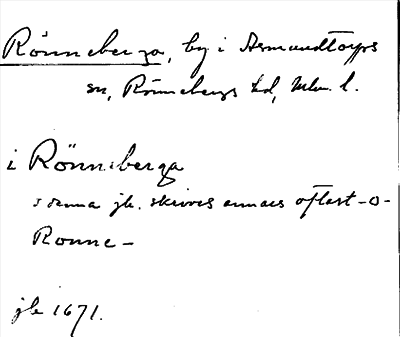 Rönneberga, by i Asmundtorps
sn, Rönnebergs hd, Mlm. l.
i Rönneberga
i denna jb. skrives annars oftast -o-
Ronne-
jb 1671.